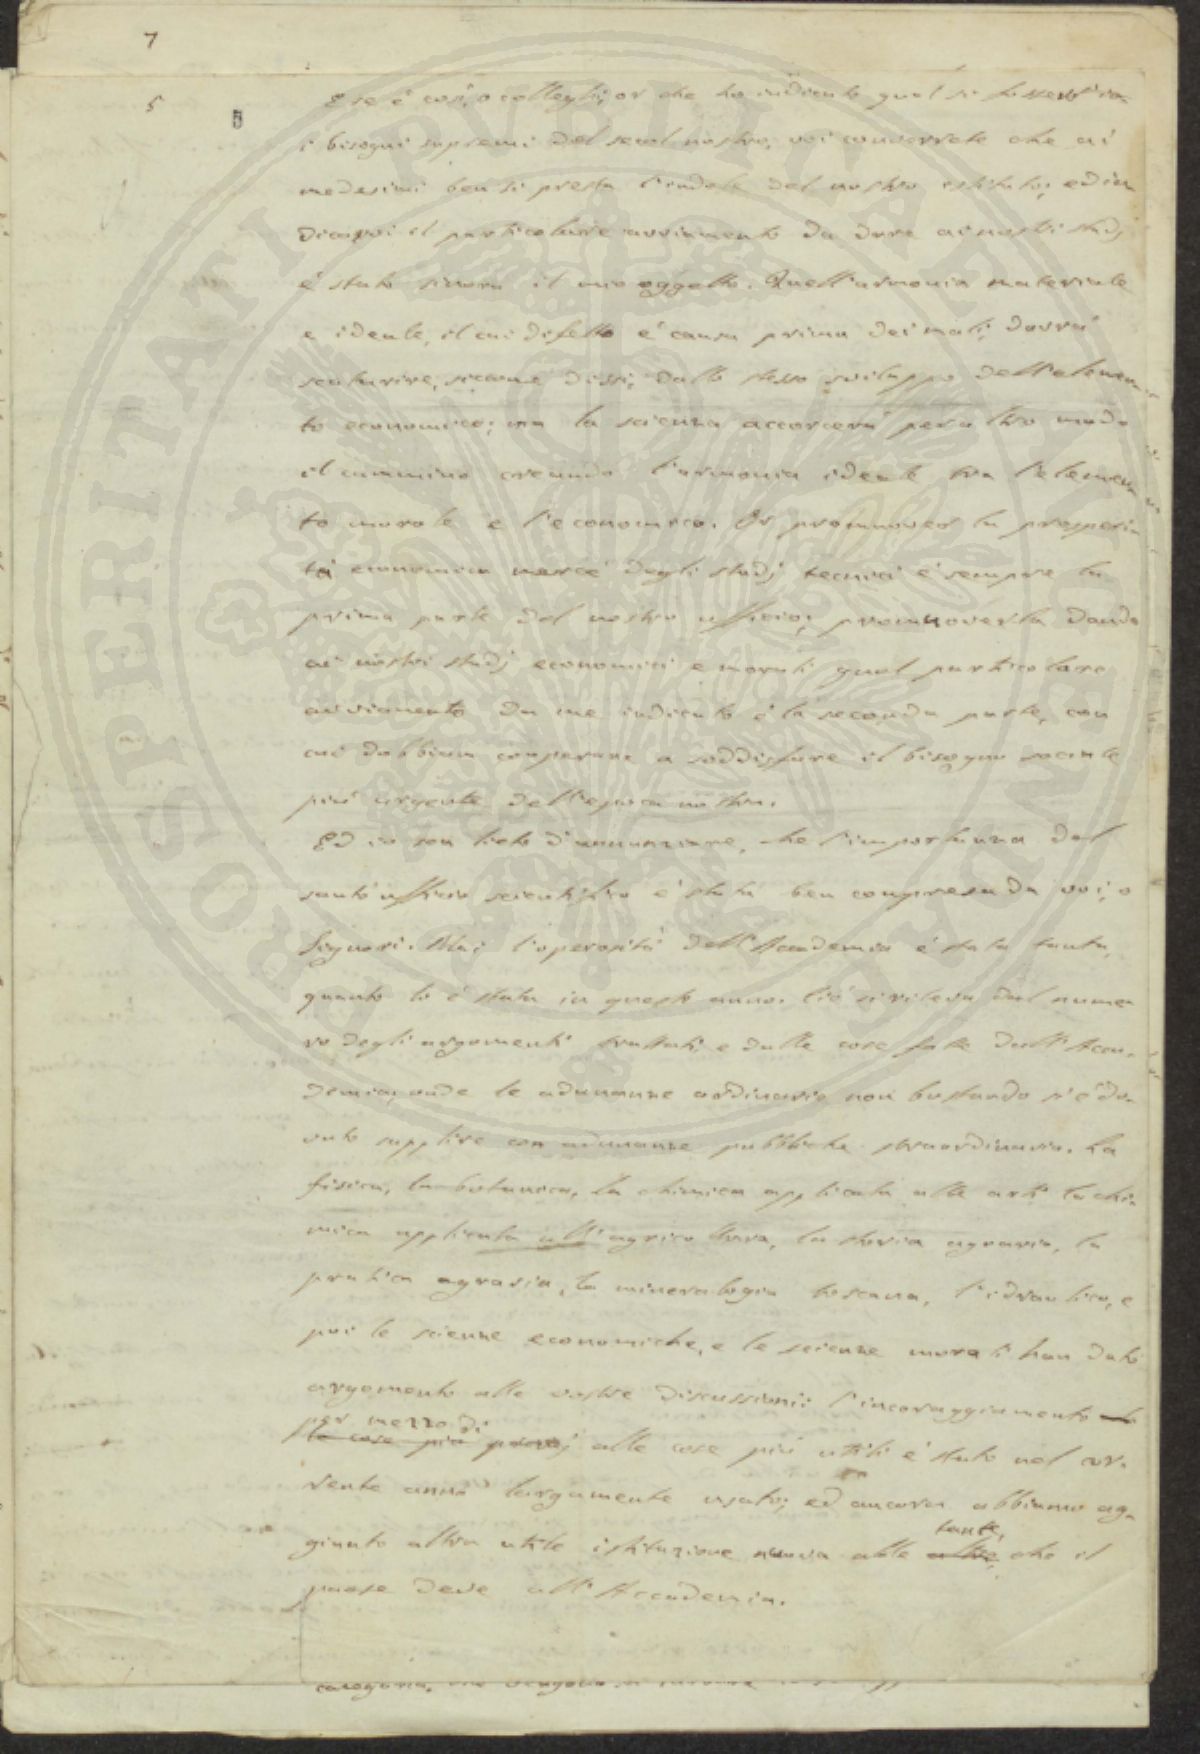 7
5
E se è così, o colleghi, or che ho indicato quali si fossero
i bisogni supremi del secol nostro, voi converrete che ai
medesimi ben si presta l'indole del nostro istituto; ed in-
dicarvi il particolare avviamento da dare ai nostri studj
è stato sinora il mio oggetto. Quell'armonia materiale
e ideale, il cui difetto è causa prima dei mali, dovrà
scaturire, siccome dissi, dallo stesso sviluppo dell'elemen-
to economico; ma la scienza accorcerà per altro modo
il cammino creando l'armonia ideale tra l'elemen-
to morale e l'economico. Or promuover la prosperi-
tà economica mercè degli studj tecnici è sempre la
prima parte del nostro ufficio; promuoverla dando
ai nostri studj economici e morali quel particolare
avviamento da me indicato è la seconda parte, con
cui dobbiam cooperare a soddisfare il bisogno sociale
più urgente dell'epoca nostra.
Ed io son lieto d'annunziare, che l'importanza del
santo ufficio scientifico è stata ben compresa da voi, o
Signori. Mai l'operosità dell'Accademia è stata tanta,
quanto lo è stata in questo anno. Ciò si rileva dal nume-
ro degli argomenti trattati e dalle cose fatte dall'Acca-
demia, onde le adunanze ordinarie non bastando si è do-
vuto supplire con adunanze pubbliche straordinarie. La
fisica, la botanica, la chimica applicata alle arti la chi-
mica applicata all'agricoltura, la storia agraria, la
pratica agraria, la mineralogia toscana, l'idraulica, e
poi le scienze economiche, e le scienze morali han dato
argomento alle vostre discussioni: l'incoraggiamento
per mezzo di
le cose più premj alle cose più utili è stato nel cor-
rente anno largamente usato; ed ancora abbiamo ag-
giunto altra utile istituzione nuova alle tante, che il
paese deve all'Accademia.
categoria, che vengono a